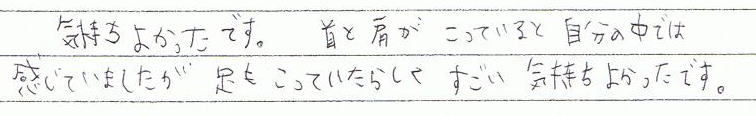 気持ちよかったです。 首と肩がこっていると自分の中では
感じていましたが 足もこっていたらしくすごい気持ちよかったです。